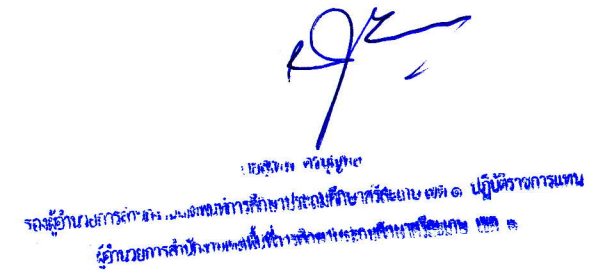 รองผู้อำนวยการสำนักงานเขตพื้นที่การศึกษาประถมศึกษาศรีสะเกษ เขต ๑ ปฏิบัติราชการแทน
ผู้อำนวยการสำนักงานเขตพื้นที่การศึกษาประถมศึกษาศรีสะเกษ เขต ๑